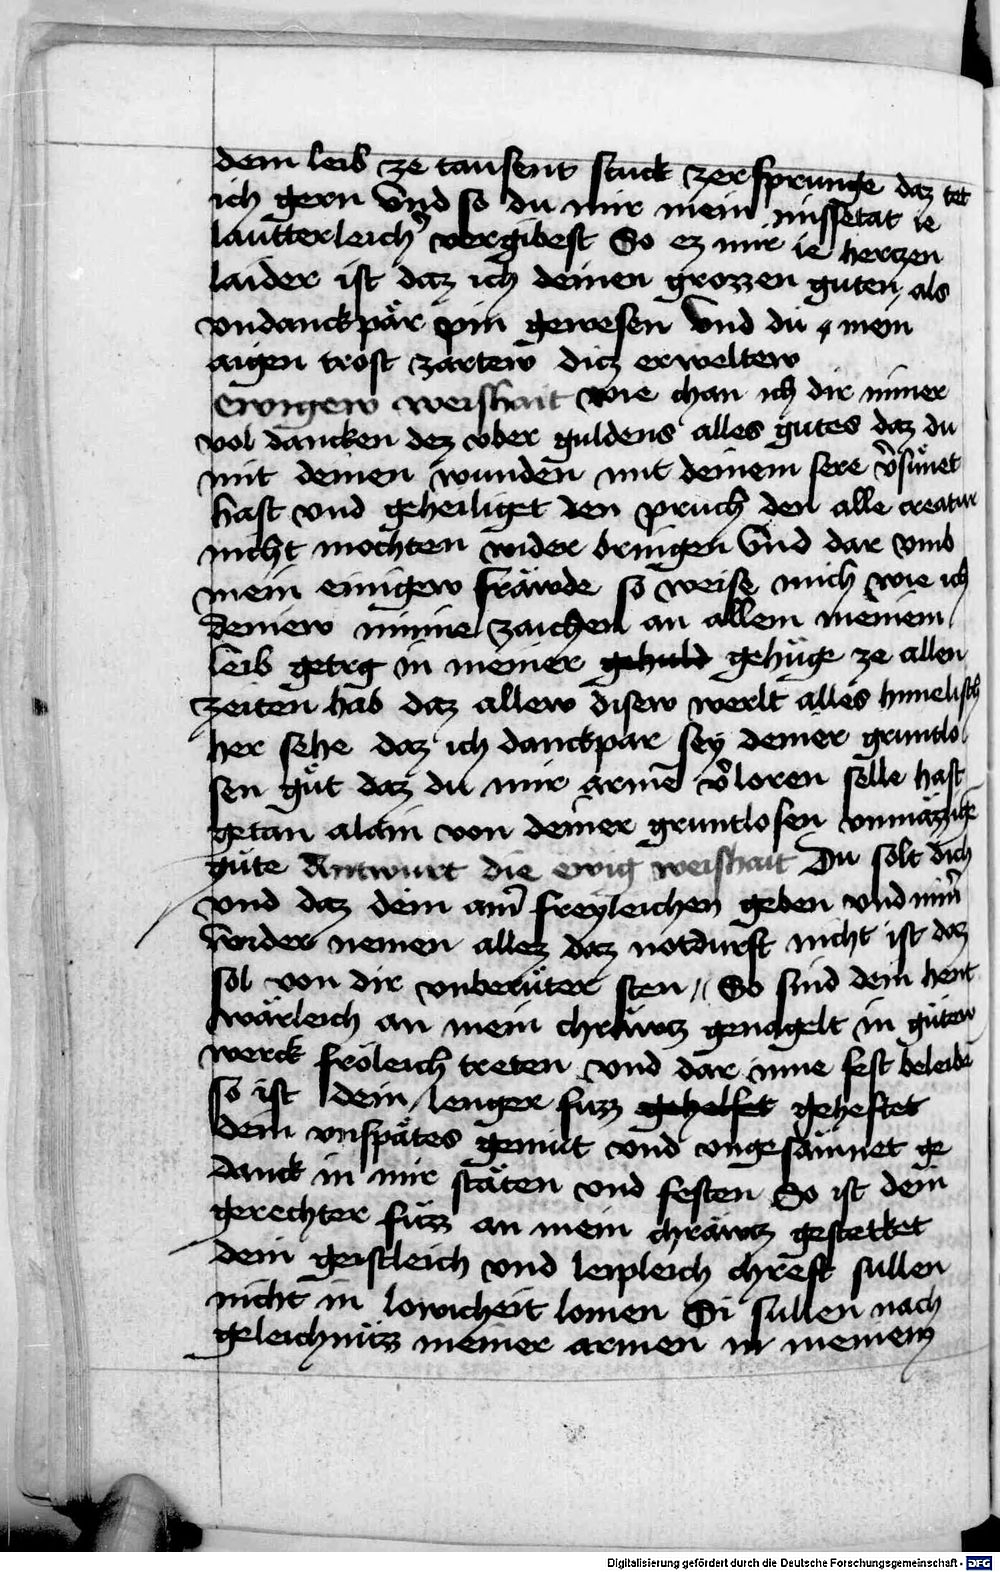 dem leib ze tausent stuck zersprunge daz tet
ich gern Und so du mir mein missetat ie
lautterleich vergibest So ez mir ie herczen
laider ist daz ich deinen grozzen guten als
vndanckpär pin gewesen Und du mein
aigen trost zartew dicz erweltew
ewigew weishait wie chan ich dir nimer
vol dancken dez vber guldens alles gutes daz du
mit deinen wunden mit deinem sere v̄sünet
hast vnd geheiliget den pruch den alle creatur
nicht mochten wider bringen Und dar vmb
mein einigew fräwde so weise mich wie ich
deinew minne zaichen an allem meinem
leib getrg in meiner gehuld gehüge ze allen
zeiten hab daz allew disew werlt alles himelisch
her sehe daz ich danckpar sey deiner gruntlo
sen güt daz du mir arme v̄loren selle hast
getan alain von deiner gruntlosen
güte Antwurt die ewig weishait Du solt dich
vnd daz dein am̄ freyleichen geben vnd nim̄
wider nemen allez daz notdurft nicht ist daz
sol von dir vnberüter sten // So sind dein hent
wärleich an mein chräwcz genagelt in gütew
werck fröleich treten vnd dar inne fest beleibe
so ist dein lenger fuzz gehelfet geheftet
dein vnspätes gemüt vnd vngesamnet ge
danck in mir stäten vnd festen So ist dein
gerechter füzz an mein chräwcz gestetket
dein geistleich vnd leipleich chreft sullen
nicht in lowicheit lomen Si sullen nach
geleichnüzz meiner armen in meinem
Digitalisierung gefördert durch die Deutsche Forschungsgemeinschaft - DFG